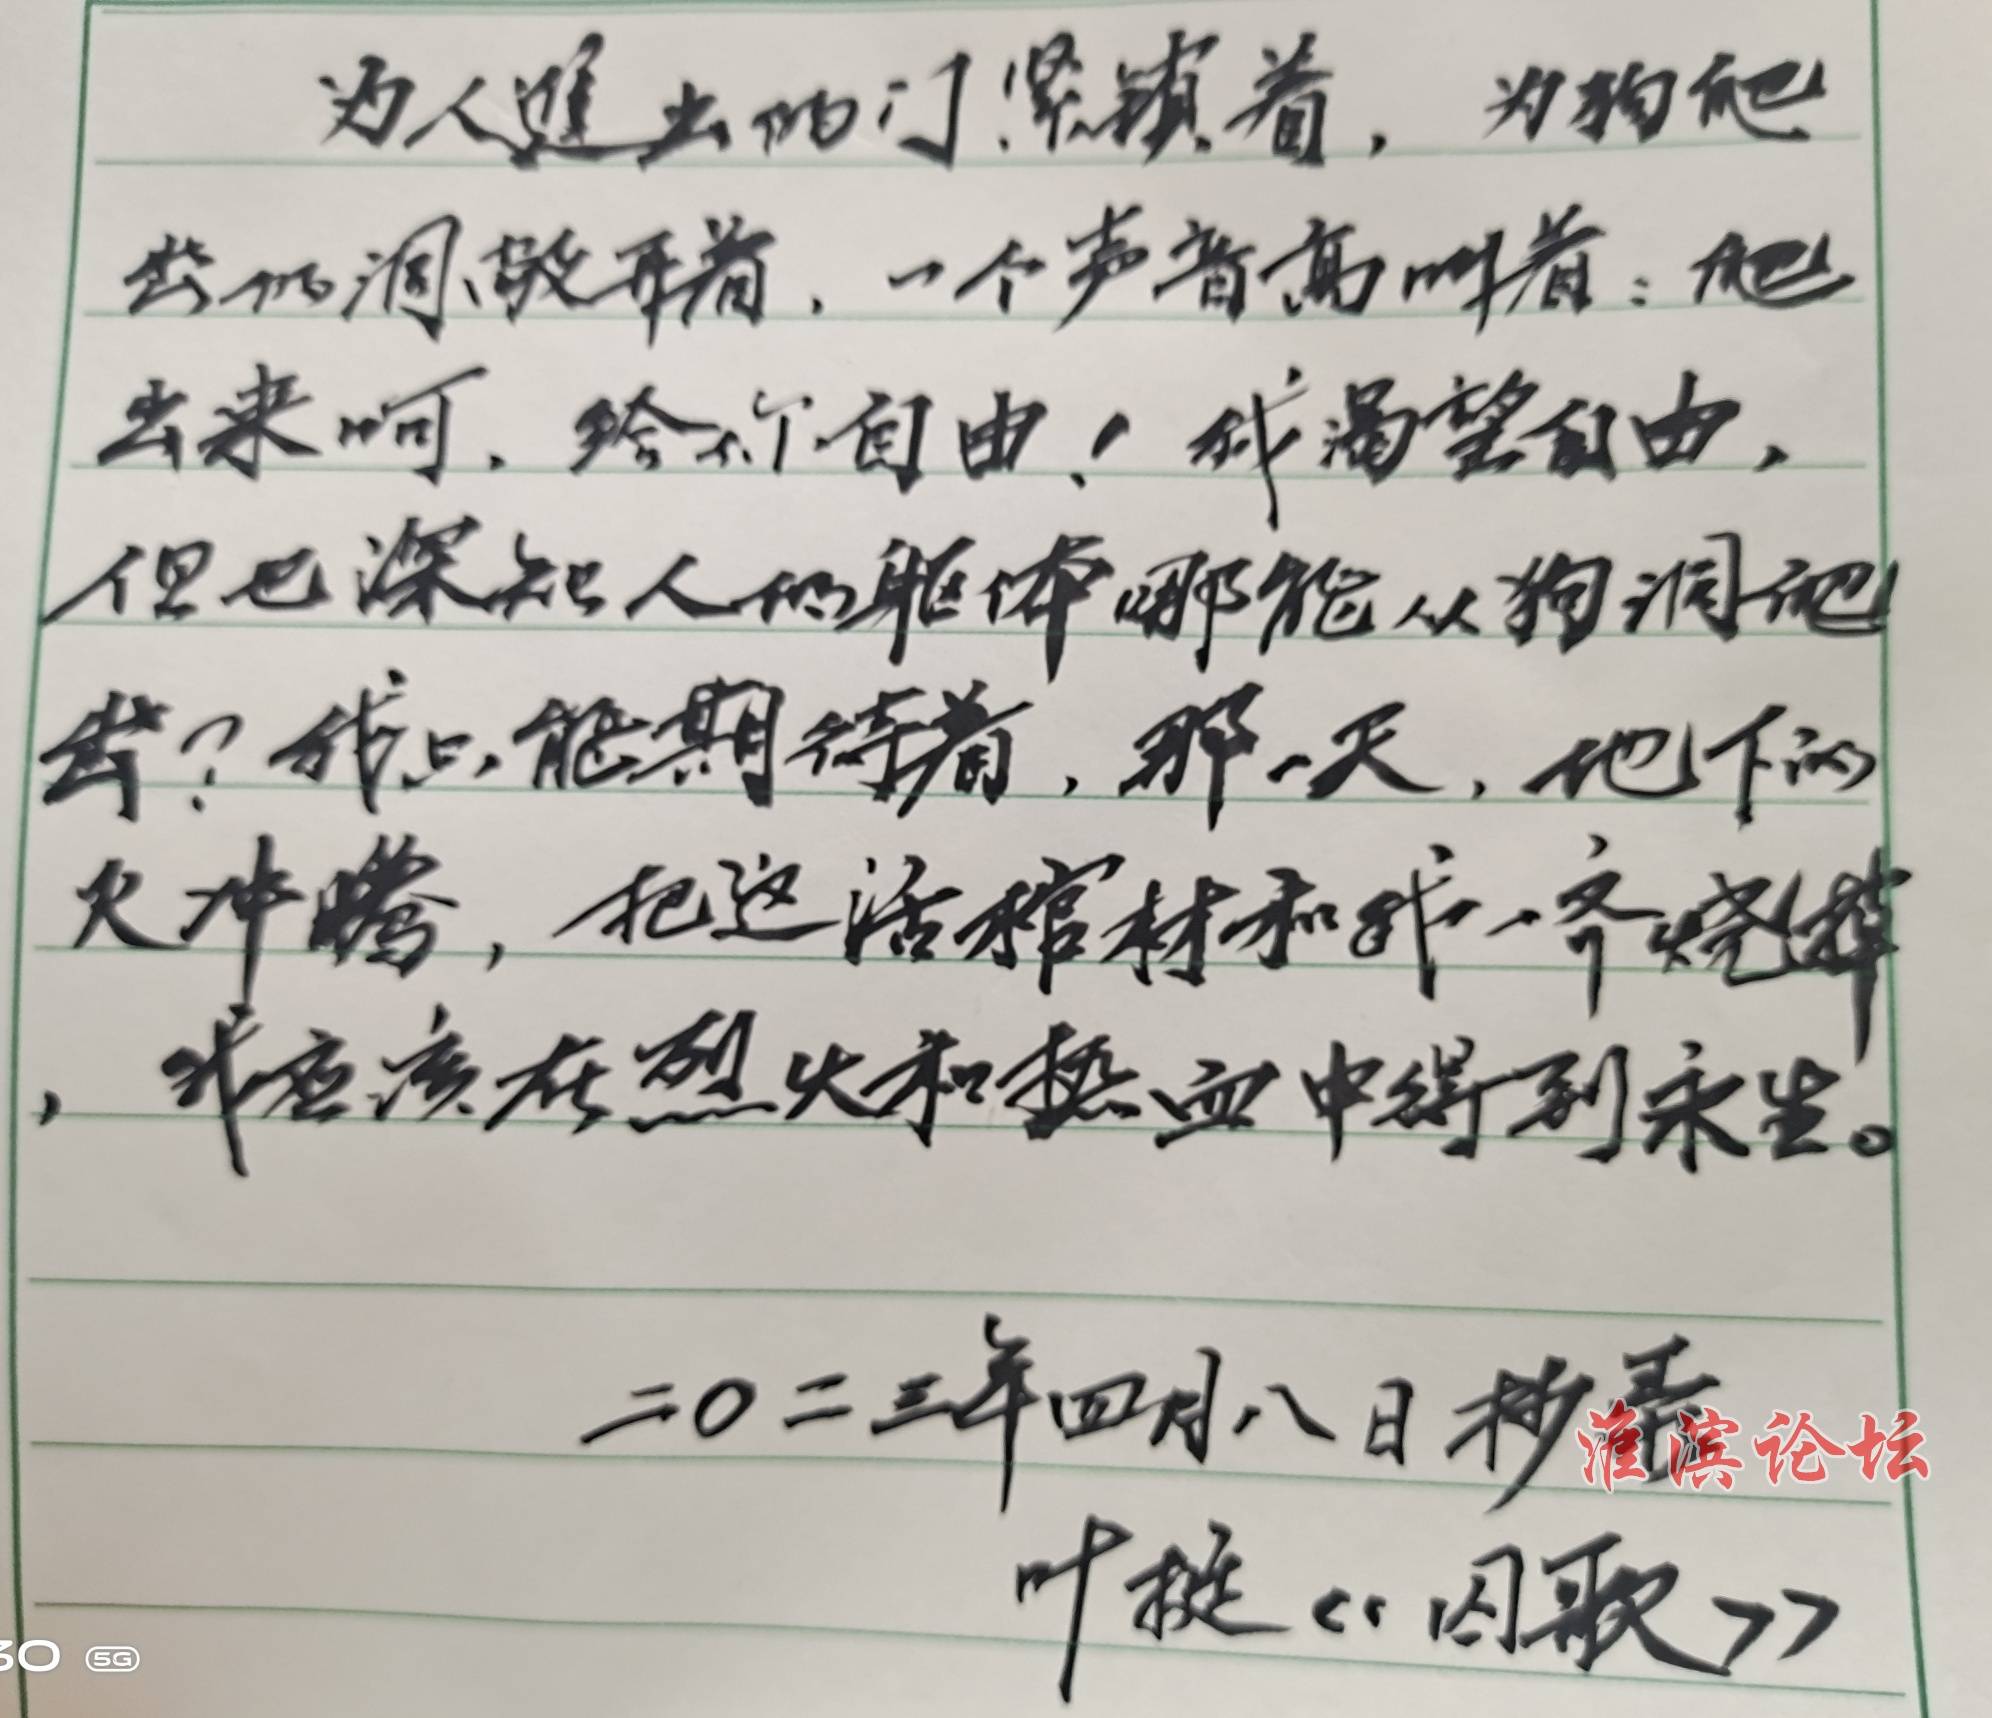 为人進出的门紧锁着，为狗爬
出的洞敞开着，一个声音高叫着：爬
出来呵，给尔自由！我渴望自由，
但也深知人的躯体哪能从狗洞爬
出？我只能期待着，那一天，地下的
火冲腾，把这活棺材和我一齐烧掉
，我应该在烈火和热血中得到永生。
二〇二三年四月八日抄录
叶挺《囚歌》
淮滨论坛
30 5G